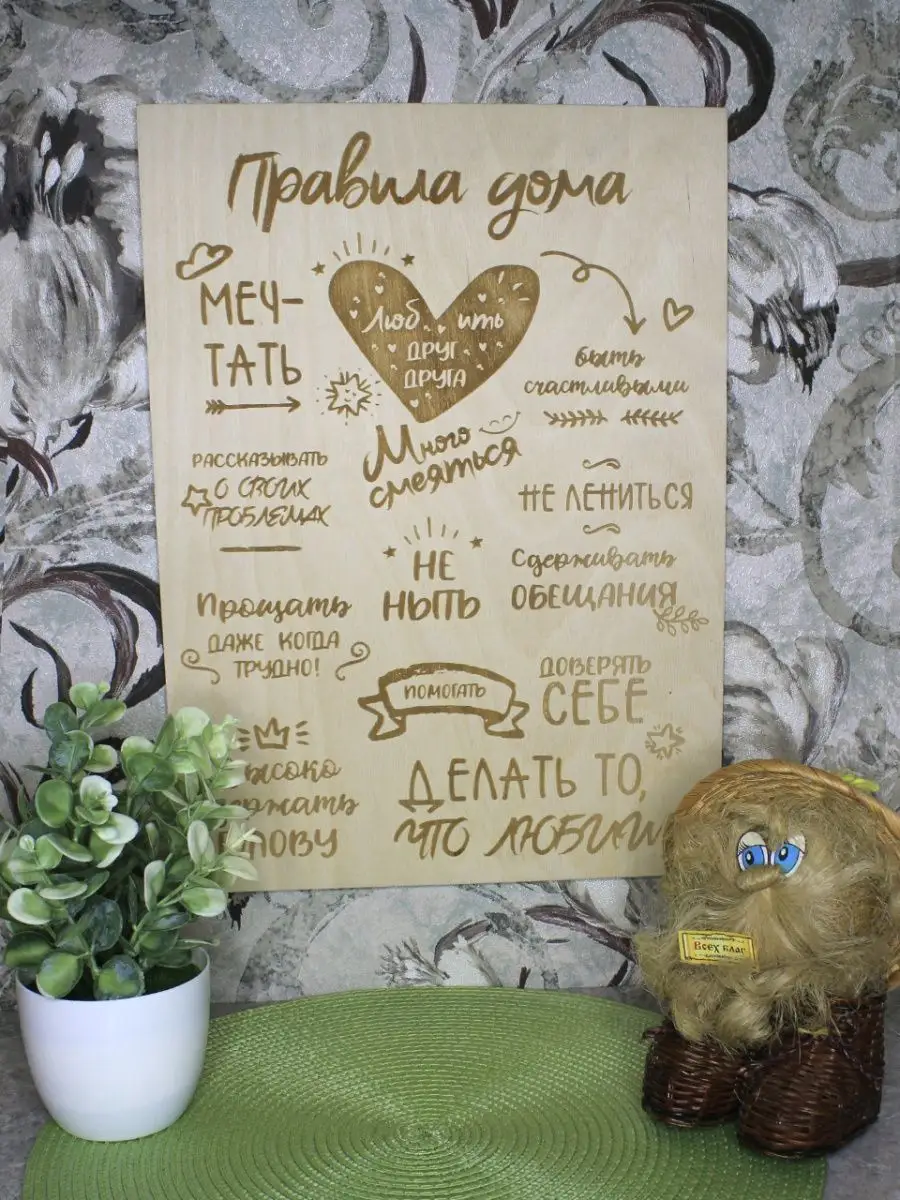 Правила дома
МЕЧ-
ТАТЬ
Люб ить
ДРУГ
ДРУГА
быть
счастливыми
Много
смеяться
РАССКАЗЫВАТЬ
О СВОИХ
ПРОБЛЕМАХ
НЕ ЛЕНИТЬСЯ
НЕ
НЫТЬ
Сдерживать
ОБЕЩАНИЯ
Прощать
ДАЖЕ КОГДА
ТРУДНО!
ПОМОГАТЬ
ДОВЕРЯТЬ
СЕБЕ
высоко
держать
голову
ДЕЛАТЬ ТО,
ЧТО ЛЮБИМ
Всех благ